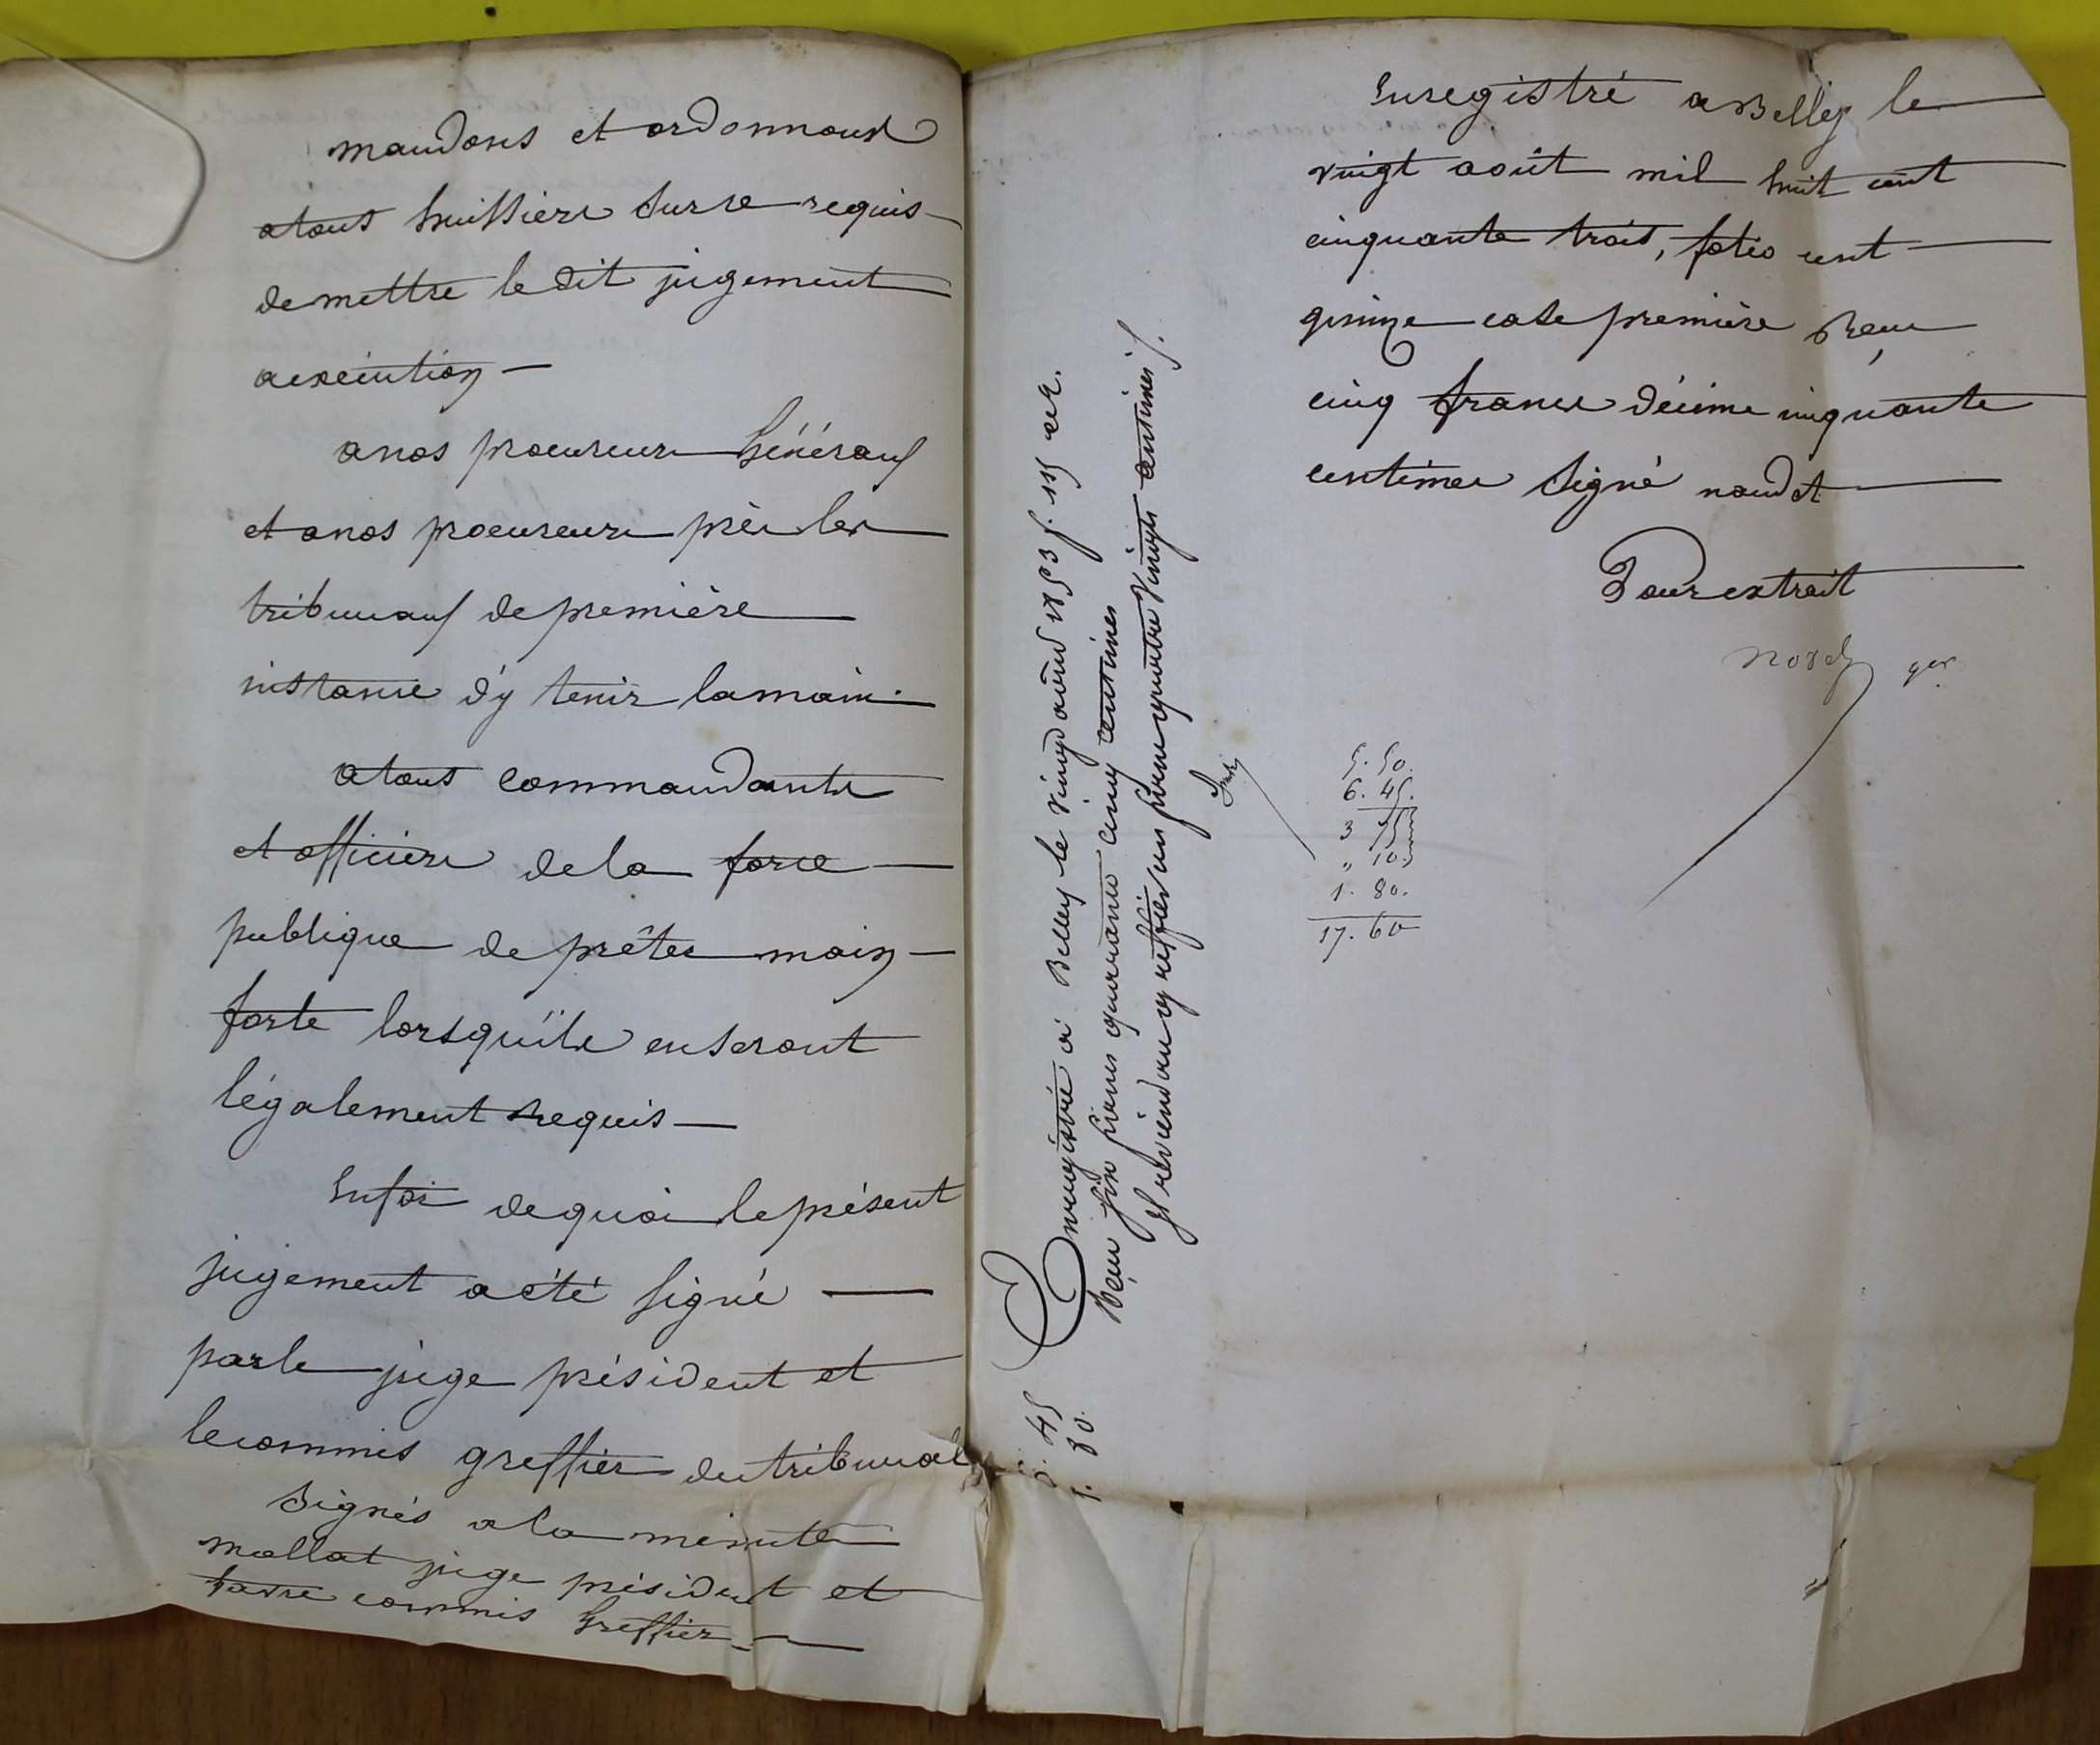 mandons et ordonnons
a tous huissiers sur ce requis
de mettre le dit jugement
a exécution —
a nos procureurs Généraux
et a nos procureurs près les
tribunaux de première
instance d'y tenir la main.
a tous commandants
et officiers de la force
publique de prêter main
forte lorsqu'ils en seront
légalement requis —
En foi de quoi le présent
jugement a été signé —
par le juge président et
le commis greffier du tribunal
Signés a la minute
mollat juge président et
commis Greffier —
Enregistré à Belley le vingt août 1853 f. 115
Reçu six francs quarante cinq centimes
Il revient au greffier un franc quatre vingts centimes
45
1. 80.
Enregistré a Belley le
vingt août mil huit cent
cinquante trois, folio cent
quinze case première Reçu
cinq francs décime cinquante
centimes Signé naudet
Pour extrait
5. 50.
6. 45.
3 75
" 10
1. 80.
17. 60